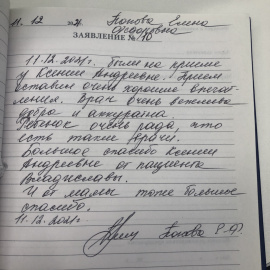 11. 12. 2021 Попова Елена
Федоровна
ЗАЯВЛЕНИЕ № 10
11.12.2021г. были на приеме
у Ксении Андреевне. Прием
оставил очень хорошие впечат-
ления. Врач очень вежлива
добра и аккуратна.
Ребенок очень рада, что
есть такие врачи.
Большое спасибо Ксении
Андреевне от пациента
Владиславы.
И от мамы тоже большое
спасибо.
11.12.2021г. Попова Е.Ф.